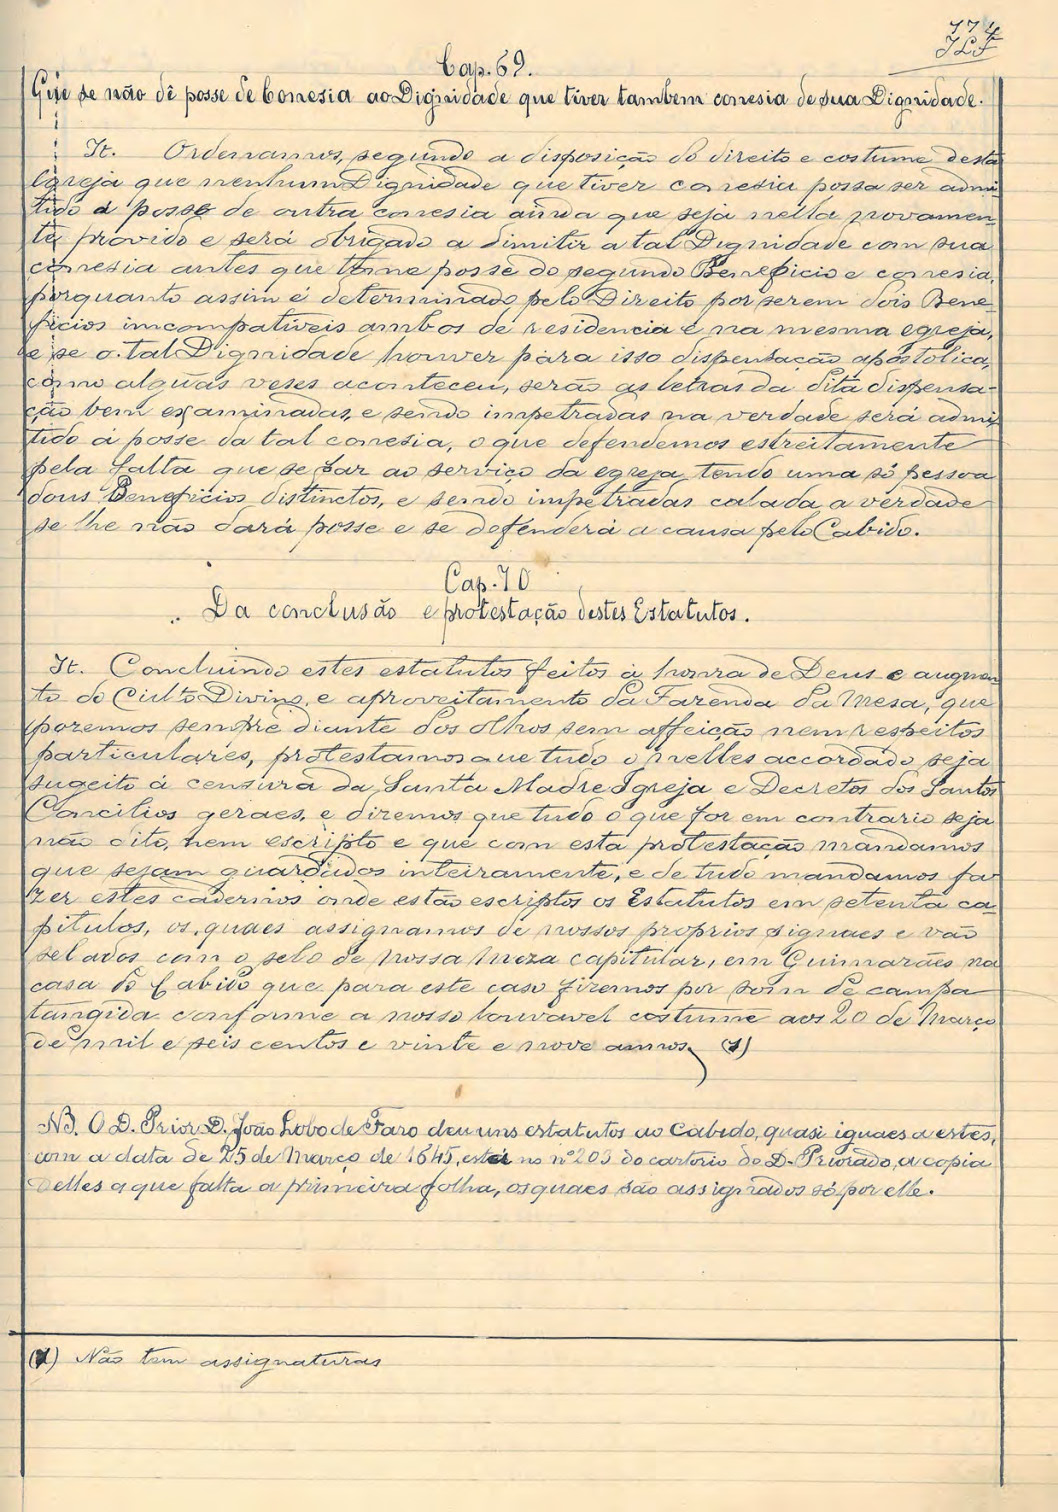 774
JLF
Cap. 69.
Que se não dê posse de Conesia ao Dignidade que tiver tambem conesia de sua Dignidade.
It. Ordenamos, segundo a disposição do direito e costume desta
Egreja que nenhum Dignidade que tiver conesia possa ser admi-
tido á posse de outra conesia ainda que seja nella novamen-
te provido e será obrigado a dimitir a tal Dignidade com sua
conesia antes que tome posse do segundo Beneficio e conesia,
porquanto assim é determinado pelo Direito por serem dois Bene-
ficios imcompativeis ambos de residencia e na mesma egreja,
e se o tal Dignidade houver para isso dispensação apostolica,
como algũas veses aconteceu, serão as letras da dita dispensa-
ção bem examinadas, e sendo impetradas na verdade será admi-
tido á posse da tal conesia, o que defendemos estreitamente
pela falta que se faz ao serviço da egreja, tendo uma só pessoa
dous Beneficios distinctos, e sendo impetradas calada a verdade
se lhe não dará posse e se defenderá a causa pelo Cabido.
Cap. 70
Da conclusão e protestação destes Estatutos.
It. Concluindo estes estatutos feitos á honra de Deus e augmen-
to do Culto Divino, e aproveitamento da Fazenda da Mesa, que
pozemos sempre diante dos olhos sem affeição nem respeitos
particulares, protestamos que tudo o nelles accordado seja
sugeito á censura da Santa Madre Igreja e Decretos dos Santos
Concilios geraes, e diremos que tudo o que for em contrario seja
não dito, nem escripto e que com esta protestação mandamos
que sejam guardados inteiramente, e de tudo mandamos fa-
zer estes cadernos onde estão escriptos os Estatutos em setenta ca-
pitulos, os quaes assignamos de nossos proprios signaes e vão
selados com o selo de nossa meza capitular, em Guimarães na
casa do Cabido que para este caso fizemos por som de campa
tangida conforme a nosso louvavel costume aos 20 de Março
de mil e seis centos e vinte e nove annos. (1)
NB. O D. Prior D. João Lobo de Faro deu uns estatutos ao Cabido, quasi iguaes a estes,
com a data de 25 de Março de 1645, está no nº 203 do cartorio do D. Priorado, a copia
delles a que falta a primeira folha, os quaes são assignados só por elle.
(1) Não tem assignaturas